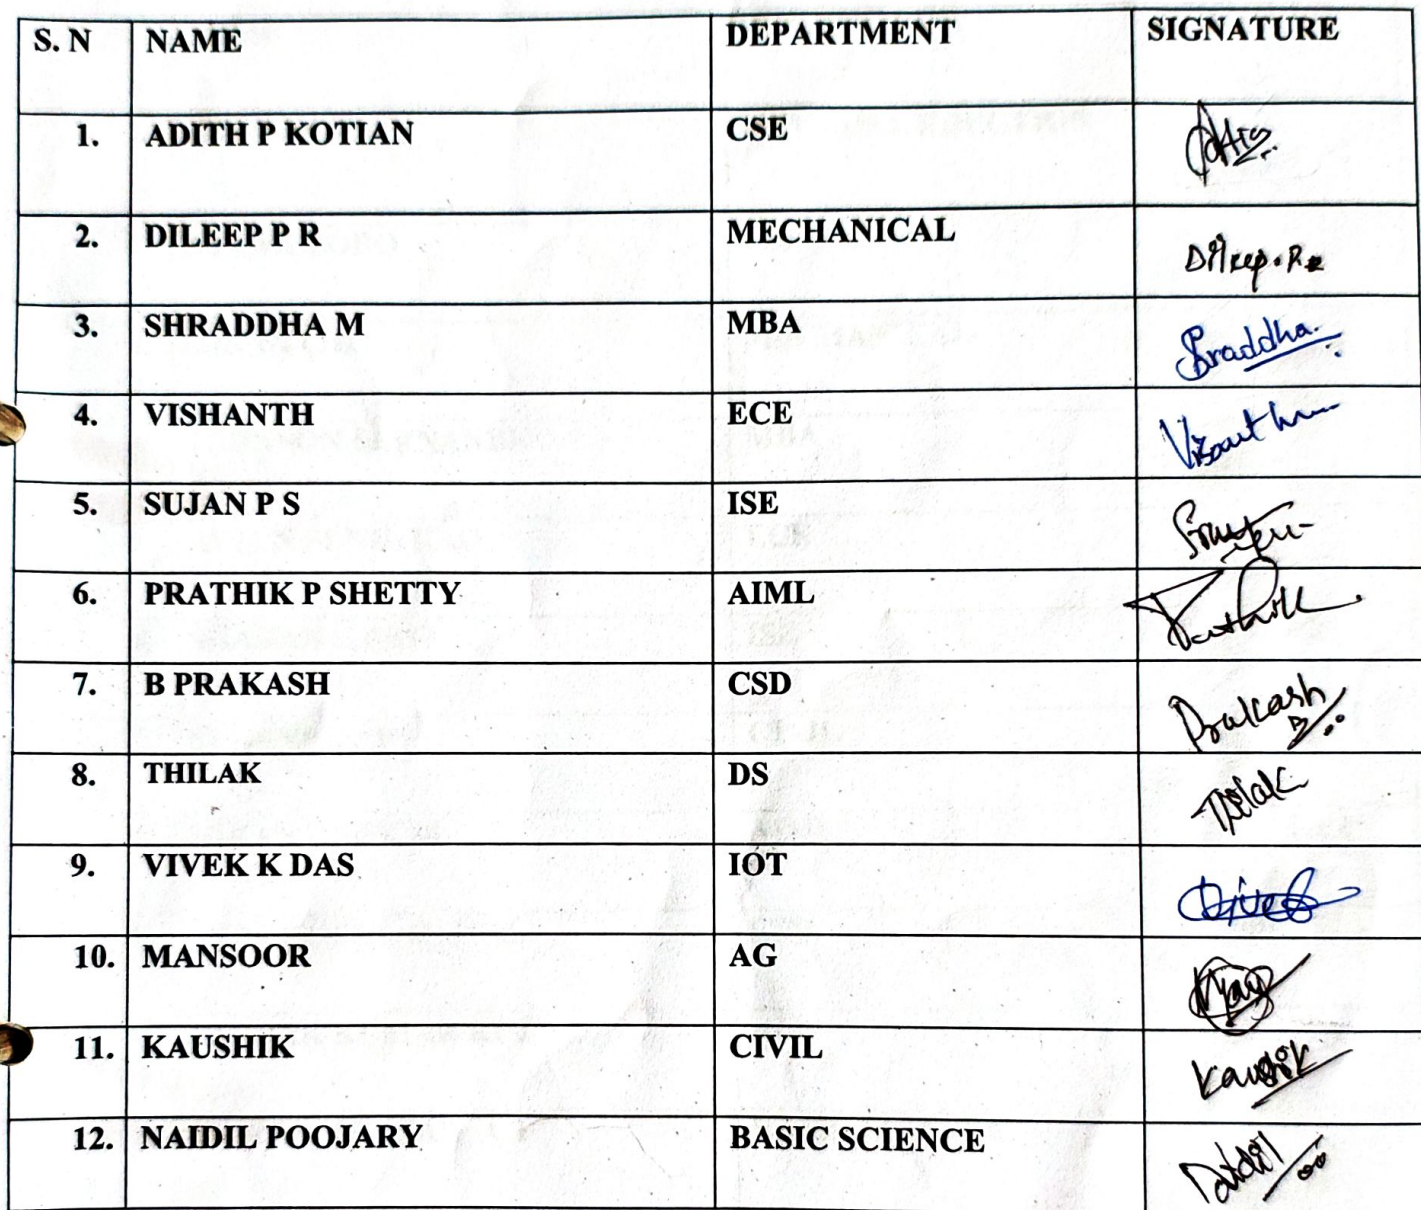 S. N NAME DEPARTMENT SIGNATURE
1. ADITH P KOTIAN CSE
2. DILEEP P R MECHANICAL Dileep.P.R
3. SHRADDHA M MBA Shraddha
4. VISHANTH ECE Vishanth
5. SUJAN P S ISE
6. PRATHIK P SHETTY AIML Prathik
7. B PRAKASH CSD Prakash B
8. THILAK DS Thilak
9. VIVEK K DAS IOT Vivek
10. MANSOOR AG
11. KAUSHIK CIVIL Kaushik
12. NAIDIL POOJARY BASIC SCIENCE Naidil